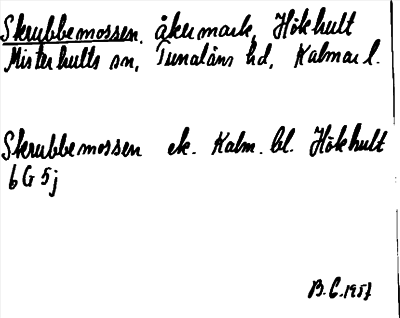 Skrubbemossen, åkermark, Hökhult
Misterhults sn, Tunaläns hd, Kalmar l.
Skrubbemossen ek. Kalm. bl. Hökhult
6G 5j
B.C. 1957